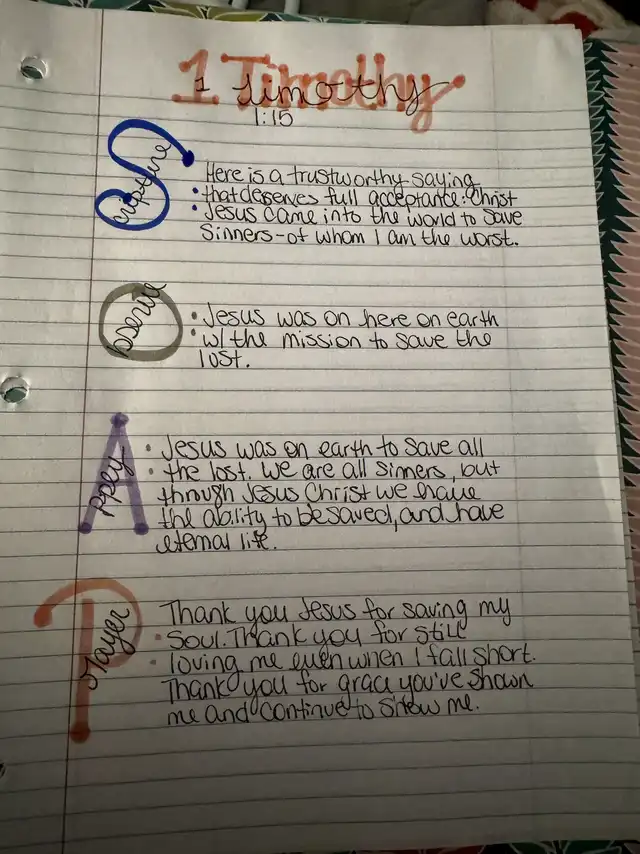 1 Timothy
1 Timothy
1:15
Scripture
Here is a trustworthy saying
that deserves full acceptance: Christ
Jesus came into the world to save
Sinners-of whom I am the worst.
Observe
Jesus was on here on earth
w/ the mission to save the
lost.
Apply
Jesus was on earth to save all
the lost. We are all sinners, but
through Jesus Christ we have
the ability to be saved, and have
eternal life.
Prayer
Thank you Jesus for saving my
Soul. Thank you for still
loving me even when I fall short.
Thank you for grace you've shown
me and continue to show me.